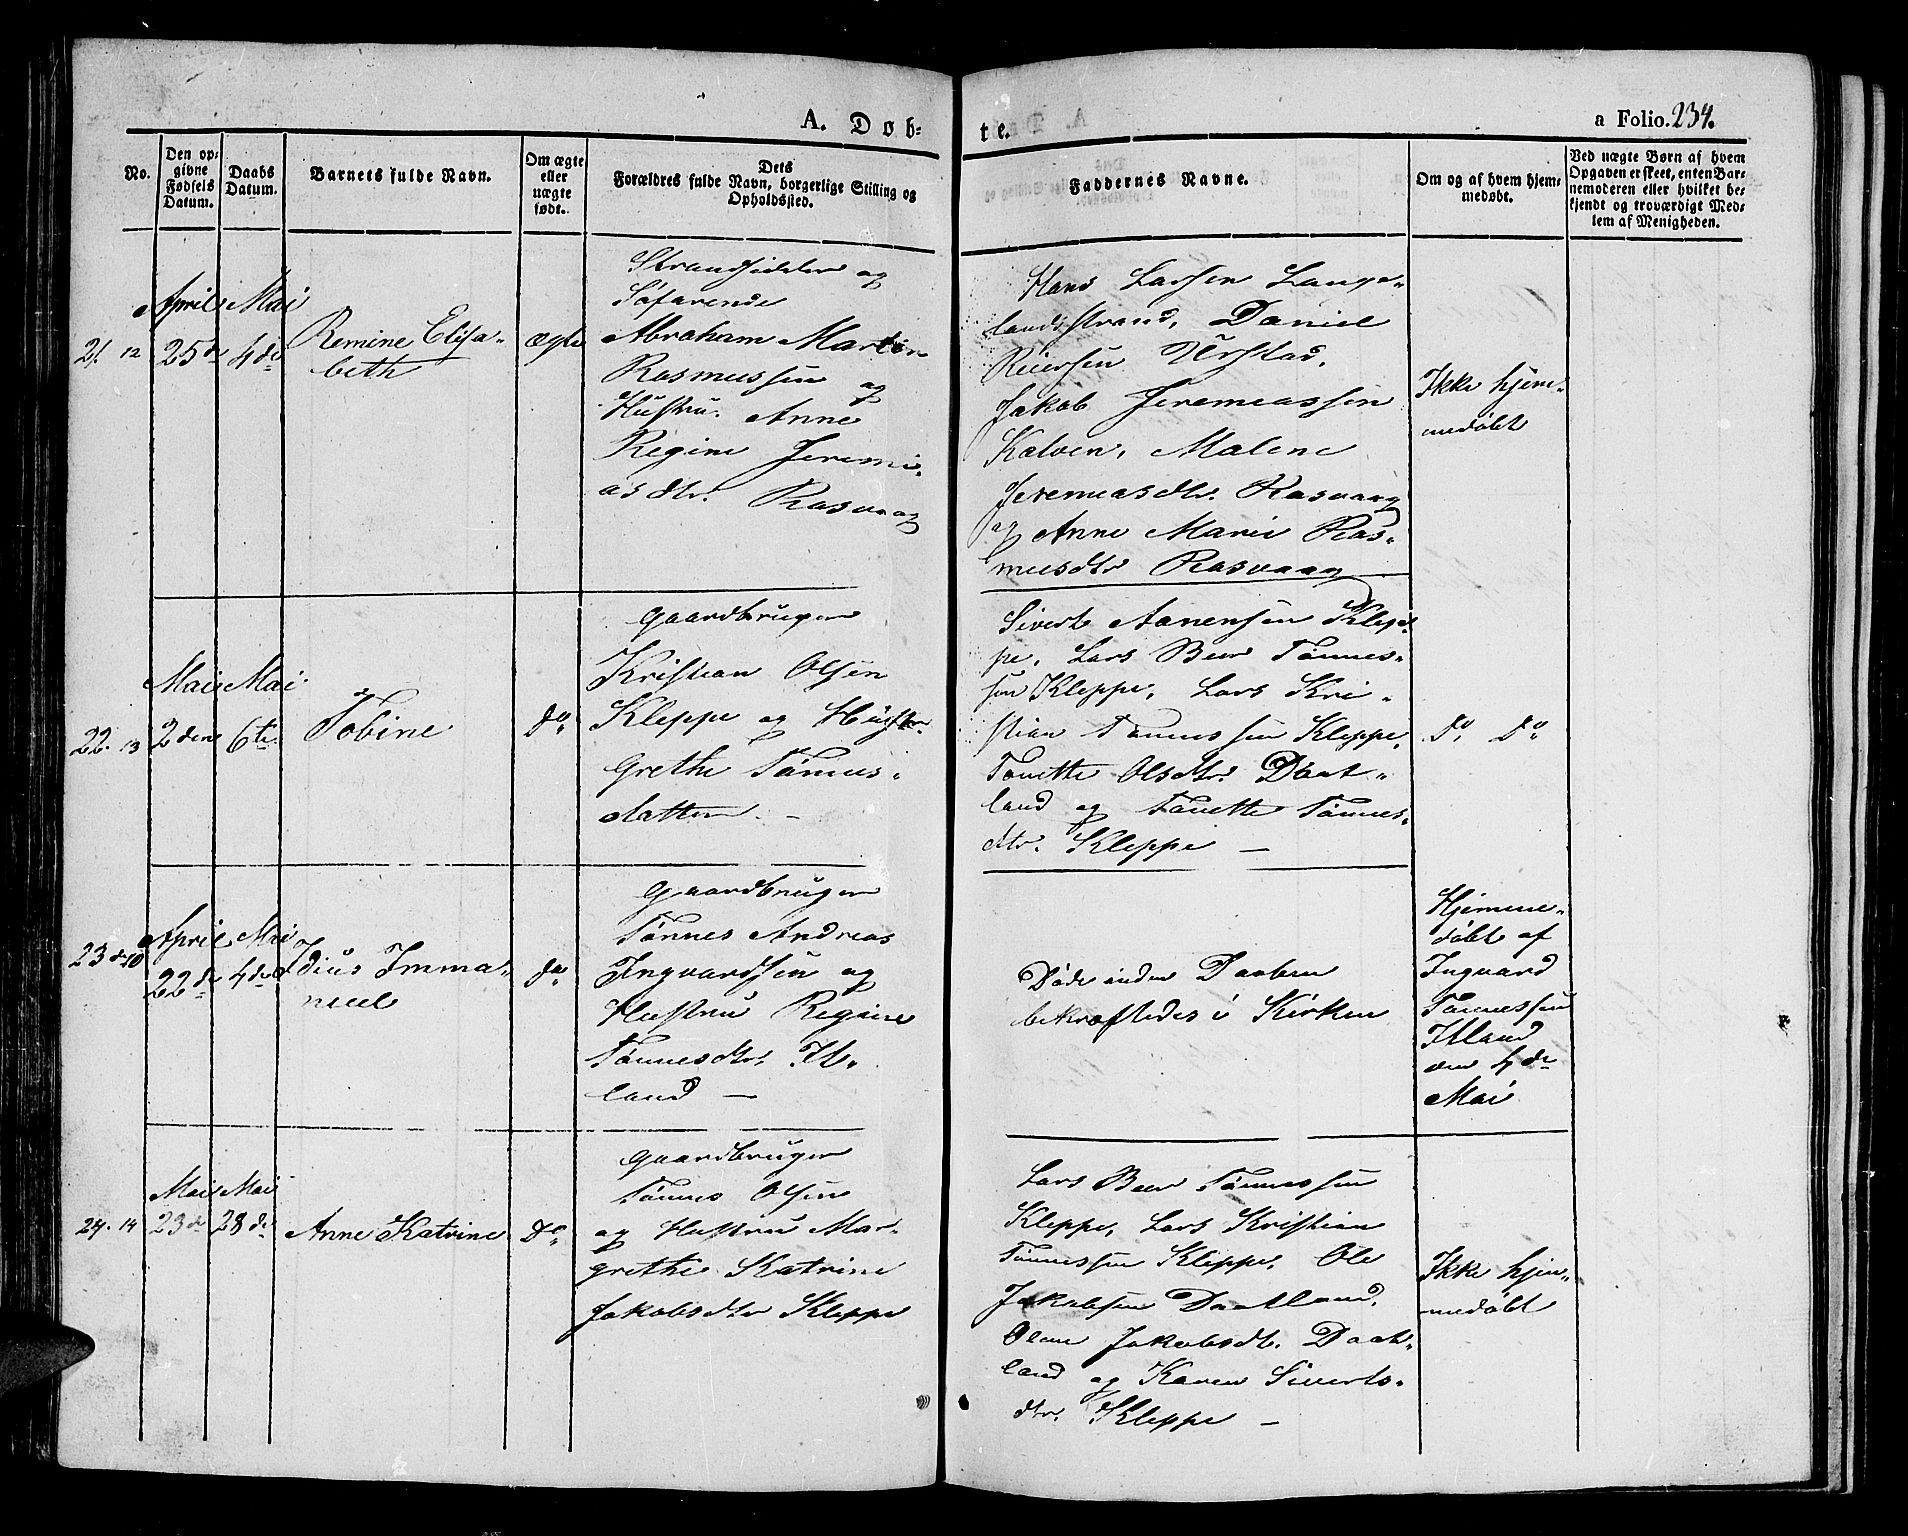 A. Døb-
te.
a Folio. 234.
No.
Den op-
givne
Fødsels
Datum.
Daabs
Datum.
Barnets fulde Navn.
Om ægte
eller
uægte
født.
Dets
Forældres fulde Navn, borgerlige Stilling og
Opholdssted.
Faddernes Navne.
Om og af hvem hjem-
medøbt.
Ved uægte Børn af hvem
Opgaven er skeet, enten Bar-
nemoderen eller hvilket be-
kjendt og troværdigt Med-
lem af Menigheden.
21. 12
April
25de
Mai
4de
Remine Elisa-
beth
ægte
Strandsidder og
Søfarende
Abraham Martin
Rasmussen og
Hustru. Anne
Regine Jeremi-
as dtr. Rasvaag
Hans Larsen Lange-
landsstrand, Daniel
Reiersen Urstad,
Jakob Jeremeassen
Kalven, Malene
Jeremeasdtr. Rasvaag
og Anne Marie Ras-
musdtr Rasvaag
Ikke hjem-
medøbt
22. 13
Mai
2den
Mai
6te
Tobine
do.
Gaardbruger
Kristian Olsen
Kleppe og Hustr.
Grethe Tønnes-
datter. -
Sivert Aanensen Klep-
pe, Lars Beer Tønnes-
sen Kleppe, Lars Kri-
stian Tønnessen Kleppe,
Tonette Olsdtr. Daat-
land og Tonette Tønnes-
dtr. Kleppe -
do. do.
23 de 10
April
22de
Mai
4de
Idius Imma-
nuel
do.
Gaardbruger
Tønnes Andreas
Ingvardsen og
Hustru Regine
Tønnesdtr. Itt-
land -
Døde inden Daaben
bekræftedes i Kirken
Hjemme-
døbt af
Ingvard
Tønnessen
Ittland
den 4de
Mai
24. 14
Mai
23de
Mai
28de
Anne Katrine
do.
Gaardbruger
Tønnes Olsen
og Hustru Mar-
grethe Katrine
Jakobsdtr Kleppe
Lars Beer Tønnessen
Kleppe, Lars Kristian
Tønnessen Kleppe, Ole
Jakobsen Daatland,
Olene Jakobsdt. Daat-
land og Karen Siverts-
dtr. Kleppe -
Ikke hjem-
medøbt